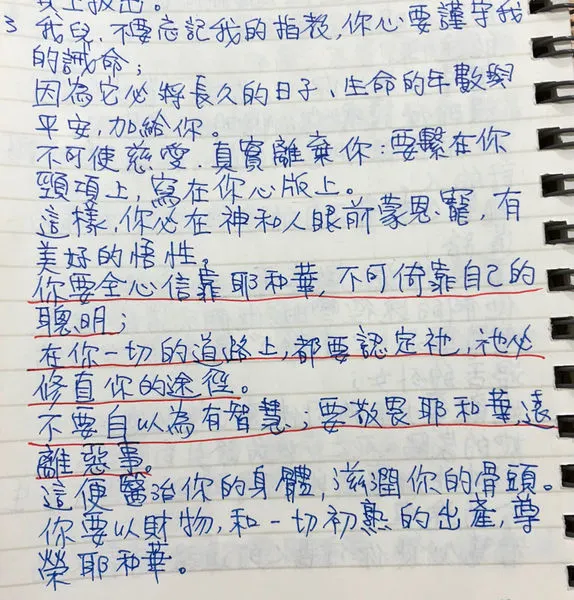 其上拔出。
3 我兒，不要忘記我的指教，你心要謹守我
的誡命；
因為它必將長久的日子、生命的年數與
平安，加給你。
不可使慈愛、真實離棄你：要繫在你
頸項上，寫在你心版上。
這樣，你必在神和人眼前蒙恩寵，有
美好的悟性。
你要全心信靠耶和華，不可倚靠自己的
聰明；
在你一切的道路上，都要認定祂，祂必
修直你的途徑。
不要自以為有智慧；要敬畏耶和華，遠
離惡事。
這便醫治你的身體，滋潤你的骨頭。
你要以財物，和一切初熟的出產，尊
榮耶和華。